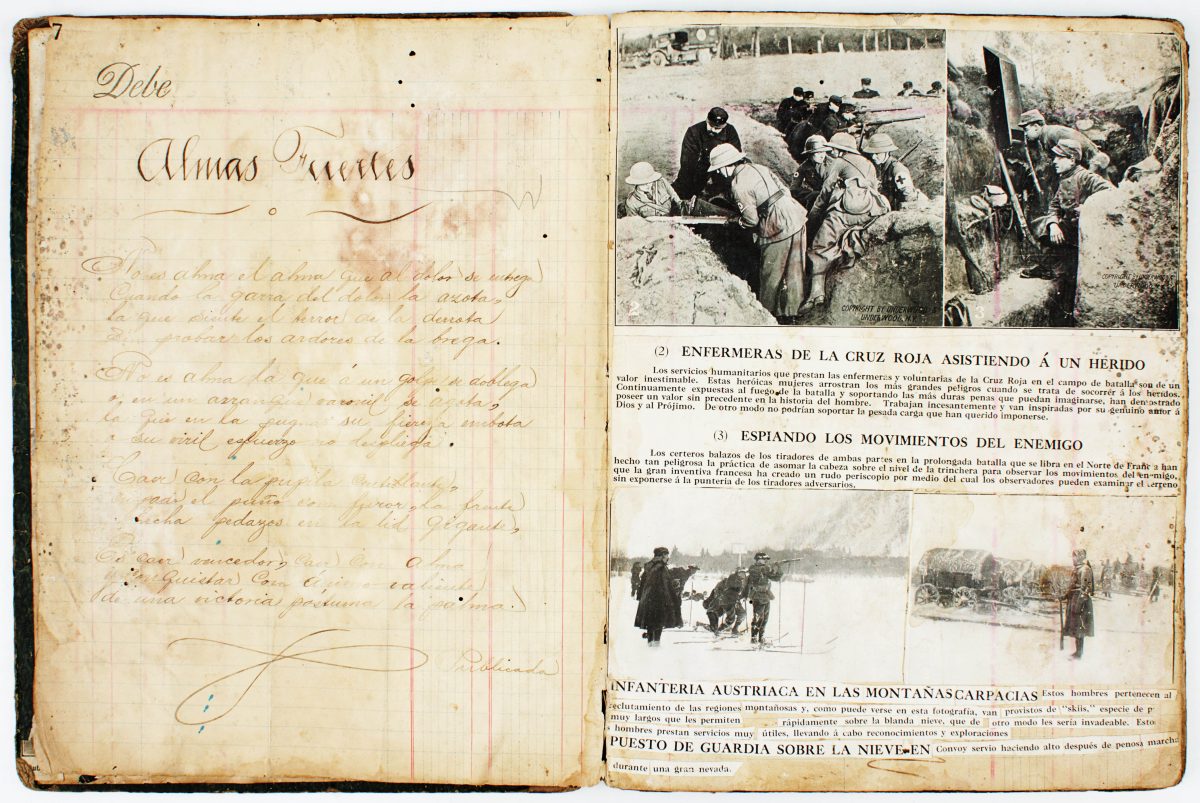 7
Debe
Almas Fuertes
No es alma el alma que al dolor se entrega
Cuando la garra del dolor la azota,
la que siente el terror de la derrota
Sin probar los ardores de la brega.
No es alma la que á un golpe se doblega
o, en un arranque se agota,
la que en la pugna su fiereza embota
su viril esfuerzo no despliega.
Caer con la pupila
el puño con furor, la frente
hecha pedazos en la lid gigante,
Es caer vencedor, caer con alma
conquistar con ánimo valiente
de una victoria póstuma la palma.
Publicada
2
COPYRIGHT BY UNDERWOOD &
UNDERWOOD, N.Y.
3
COPYRIGHT BY UNDERWOOD
(2) ENFERMERAS DE LA CRUZ ROJA ASISTIENDO Á UN HERIDO
Los servicios humanitarios que prestan las enfermeras y voluntarias de la Cruz Roja en el campo de batalla son de un
valor inestimable. Estas heróicas mujeres arrostran los más grandes peligros cuando se trata de socorrér á los heridos.
Continuamente expuestas al fuego de la batalla y soportando las más duras penas que puedan imaginarse, han demostrado
poseer un valor sin precedente en la historia del hombre. Trabajan incesantemente y van inspiradas por su genuino amor á
Dios y al Prójimo. De otro modo no podrían soportar la pesada carga que han querido imponerse.
(3) ESPIANDO LOS MOVIMIENTOS DEL ENEMIGO
Los certeros balazos de los tiradores de ambas partes en la prolongada batalla que se libra en el Norte de Francia han
hecho tan peligrosa la práctica de asomar la cabeza sobre el nivel de la trinchera para observar los movimientos del enemigo,
que la gran inventiva francesa ha creado un rudo periscopio por medio del cual los observadores pueden examinar el terreno
sin exponerse á la puntería de los tiradores adversarios.
INFANTERIA AUSTRIACA EN LAS MONTAÑAS CARPACIAS Estos hombres pertenecen al
reclutamiento de las regiones montañosas y, como puede verse en esta fotografía, van provistos de "skiis," especie de p
muy largos que les permiten rápidamente sobre la blanda nieve, que de otro modo les sería invadeable. Estos
hombres prestan servicios muy útiles, llevando á cabo reconocimientos y exploraciones
PUESTO DE GUARDIA SOBRE LA NIEVE EN Convoy servio haciendo alto después de penosa marcha
durante una gran nevada.